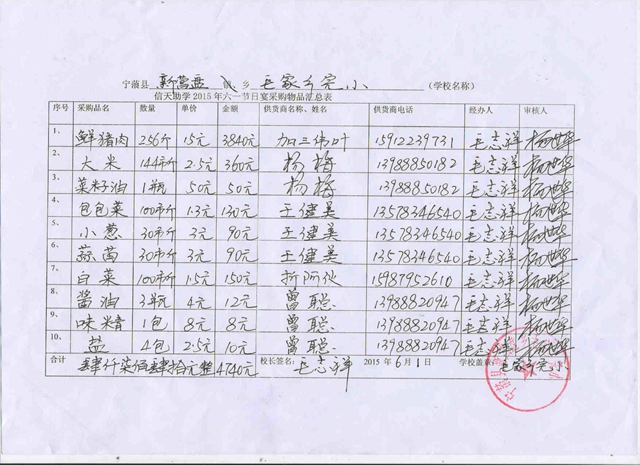 宁蒗县 新营盘 乡 毛家乡完小 (学校名称)
信天助学2015年六一节日宴采购物品汇总表
序号 采购品名 数量 单价 金额 供货商名称、姓名 供货商电话 经办人 审核人
1、 鲜猪肉 256斤 15元 3840元 加三伟叶 15912239731 毛志祥 杨世华
2、 大米 144市斤 2.5元 360元 杨梅 13988850182 毛志祥 杨世华
3、 菜籽油 1瓶 50元 50元 杨梅 13988850182 毛志祥 杨世华
4、 包包菜 100市斤 1.3元 130元 王健美 13578346540 毛志祥 杨世华
5、 小葱 30市斤 3元 90元 王健美 13578346540 毛志祥 杨世华
6、 蒜苗 30市斤 3元 90元 王健美 13578346540 毛志祥 杨世华
7、 白菜 100市斤 1.5元 150元 折阿伙 15987952610 毛志祥 杨世华
8、 酱油 3瓶 4元 12元 曾聪 13988820947 毛志祥 杨世华
9、 味精 1包 8元 8元 曾聪 13988820947 毛志祥 杨世华
10、 盐 4包 2.5元 10元 曾聪 13988820947 毛志祥 杨世华
合计 肆仟柒佰肆拾元整 4740元 校长签名: 毛志祥 2015年6月1日 学校盖章: 毛家乡完小